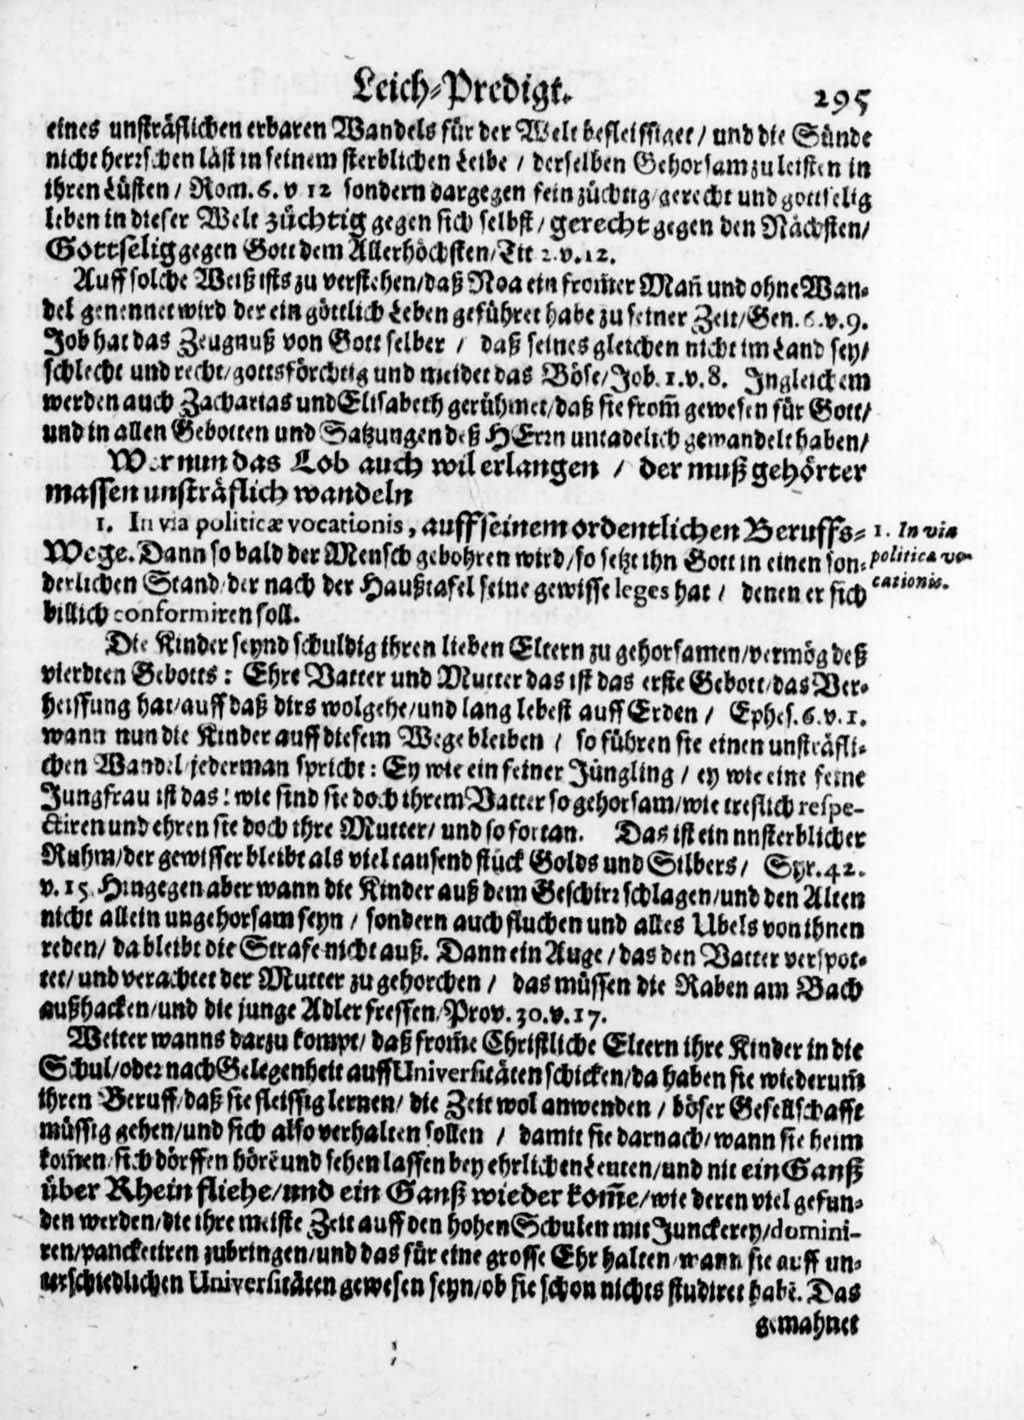 Leich-Predigt. 295
eines unsträflichen erbaren Wandels für der Welt befleissiget / und die Sünde
nicht herrschen läst in seinem sterblichen Leibe / derselben Gehorsam zu leisten in
ihren Lüsten / Rom. 6. v 12 sondern dargegen fein züchtig/gerecht und gottselig
leben in dieser Welt züchtig gegen sich selbst / gerecht gegen den Nächsten/
Gottselig gegen Gott dem Allerhöchsten/Tit 2.v.12.
Auff solche Weiß ists zu verstehen/daß Noa ein from̄er Man̄ und ohne Wan-
del genennet wird der ein göttlich Leben geführet habe zu seiner Zeit/Gen. 6.v.9.
Job hat das Zeugnuß von Gott selber / daß seines gleichen nicht im Land sey/
schlecht und recht/gottsförchtig und meidet das Böse/Job. 1.v.8. Ingleichem
werden auch Zacharias und Elisabeth gerühmet/daß sie from̄ gewesen für Gott/
und in allen Gebotten und Satzungen deß HErrn untadelich gewandelt haben/
Wer nun das Lob auch wil erlangen / der muß gehörter
massen unsträflich wandeln
1. In via politicæ vocationis, auff seinem ordentlichen Beruffs-
Wege. Dann so bald der Mensch gebohren wird/so setzt ihn Gott in einen son-
derlichen Stand/der nach der Haußtafel seine gewisse leges hat / denen er sich
billich conformiren soll.
1. In via
politica vo-
cationis.
Die Kinder seynd schuldig ihren lieben Eltern zu gehorsamen/vermög deß
vierdten Gebotts: Ehre Vatter und Mutter das ist das erste Gebott/das Ver-
heissung hat/auff daß dirs wolgehe/und lang lebest auff Erden / Ephes. 6. v. 1.
wann nun die Kinder auff diesem Wege bleiben / so führen sie einen unsträfli-
chen Wandel/jederman spricht: Ey wie ein feiner Jüngling / ey wie eine feine
Jungfrau ist das! wie sind sie doch ihrem Vatter so gehorsam/wie treflich respe-
ctiren und ehren sie doch ihre Mutter/ und so fortan. Das ist ein nnsterblicher
Ruhm/der gewisser bleibt als viel tausend stück Golds und Silbers/ Syr. 42.
v. 15. Hingegen aber wann die Kinder auß dem Geschirr schlagen/und den Alten
nicht allein ungehorsam seyn / sondern auch fluchen und alles Ubels von ihnen
reden/ da bleibt die Strafe nicht auß. Dann ein Auge / das den Vatter verspot-
tet/ und verachtet der Mutter zu gehorchen / das müssen die Raben am Bach
außhacken/und die junge Adler fressen/Prov. 30.v.17.
Weiter wanns darzu kompt/ daß from̄e Christliche Eltern ihre Kinder in die
Schul/oder nach Gelegenheit auff Universitäten schicken/da haben sie wiederum̄
ihren Beruff/daß sie fleissig lernen/ die Zeit wol anwenden / böser Gesellschafft
müssig gehen/und sich also verhalten sollen / damit sie darnach/ wann sie heim
kom̄en/sich dörffen hörē und sehen lassen bey ehrlichen Leuten/und nit ein Ganß
über Rhein fliehe/und ein Ganß wieder kom̄e/wie deren viel gefun-
den werden/die ihre meiste Zeit auff den hohen Schulen mit Junckerey/domini-
ren/panckettren zubringen/und das für eine grosse Ehr halten/wann sie auff un-
terschiedlichen Universitäten gewesen seyn/ob sie schon nichts studiret habē. Das
gemahnet